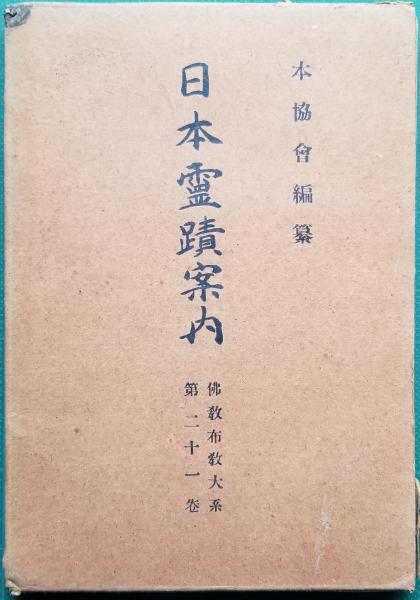 本協會編纂
日本靈蹟案内
佛教布教大系
第二十一卷